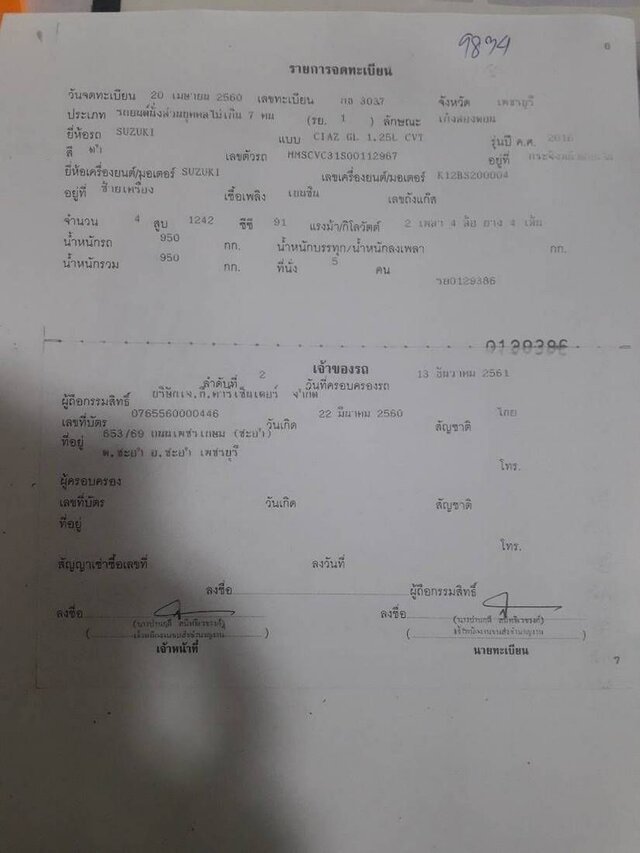 9834
6
รายการจดทะเบียน
วันจดทะเบียน 20 เมษายน 2560 เลขทะเบียน กล 3037 จังหวัด เพชรบุรี
ประเภท รถยนต์นั่งส่วนบุคคลไม่เกิน 7 คน (รย. 1 ) ลักษณะ เก๋งสองตอน
ยี่ห้อรถ SUZUKI แบบ CIAZ GL 1.25L CVT รุ่นปี ค.ศ. 2016
สี ดำ เลขตัวรถ MMSCVC31S00112967 อยู่ที่
ยี่ห้อเครื่องยนต์/มอเตอร์ SUZUKI เลขเครื่องยนต์/มอเตอร์ K12BS200004
อยู่ที่ ซ้ายเครื่อง เชื้อเพลิง เบนซิน เลขถังแก๊ส
จำนวน 4 สูบ 1242 ซีซี 91 แรงม้า/กิโลวัตต์ 2 เพลา 4 ล้อ ยาง 4 เส้น
น้ำหนักรถ 950 กก. น้ำหนักบรรทุก/น้ำหนักลงเพลา กก.
น้ำหนักรวม 950 กก. ที่นั่ง 5 คน
รย0129386
0129386
เจ้าของรถ
ลำดับที่ 2 วันที่ครอบครองรถ 13 ธันวาคม 2561
ผู้ถือกรรมสิทธิ์ บริษัทเจ.ที.คาร์เซ็นเตอร์ จำกัด
เลขที่บัตร 0765560000446 วันเกิด 22 มีนาคม 2560 สัญชาติ ไทย
ที่อยู่ 653/69 ถนนเพชรเกษม (ชะอำ)
ต.ชะอำ อ.ชะอำ เพชรบุรี
โทร.
ผู้ครอบครอง
เลขที่บัตร วันเกิด สัญชาติ
ที่อยู่
โทร.
สัญญาเช่าซื้อเลขที่ ลงวันที่
ลงชื่อ ผู้ถือกรรมสิทธิ์
ลงชื่อ ลงชื่อ
เจ้าพนักงานขนส่งชำนาญงาน เจ้าพนักงานขนส่งชำนาญงาน
เจ้าหน้าที่ นายทะเบียน
7